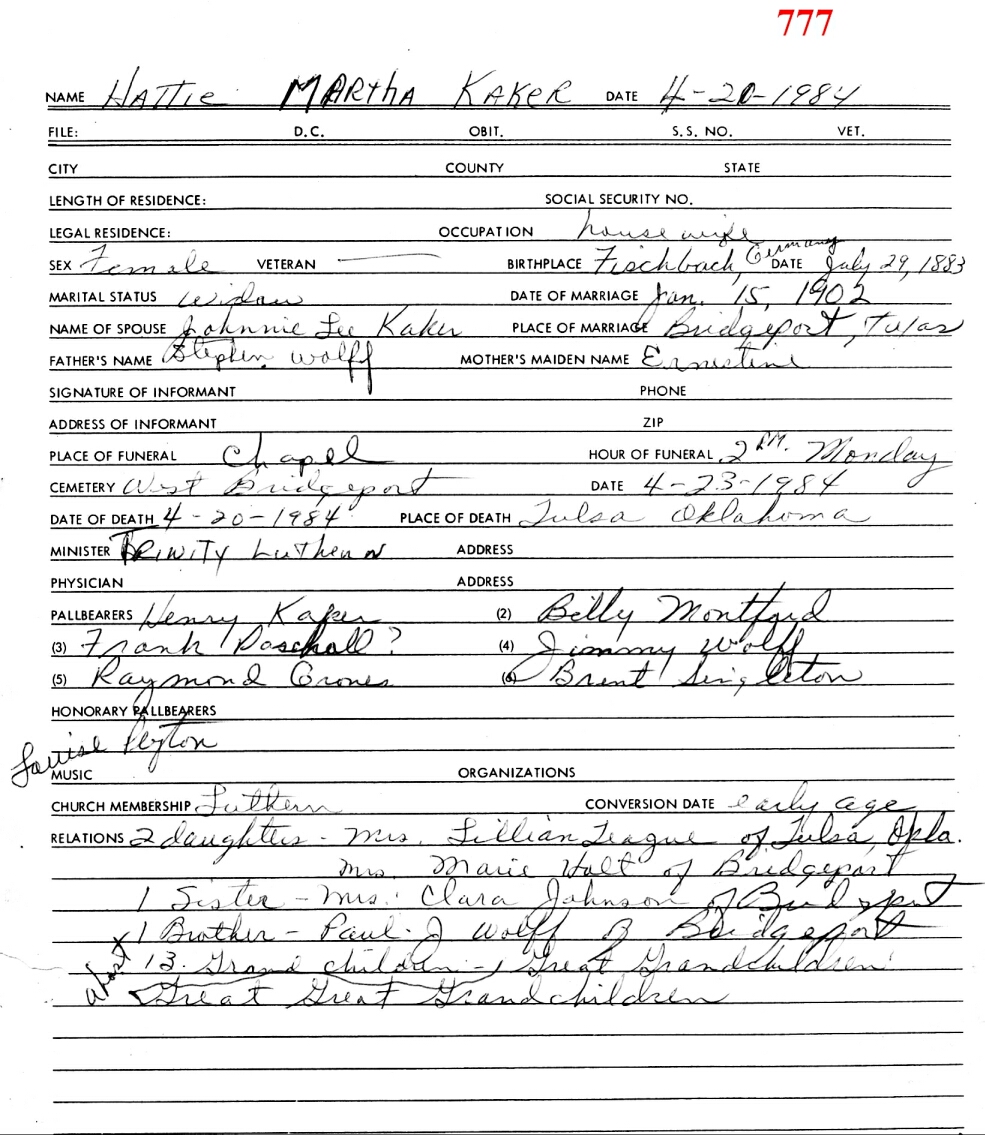 777
NAME Hattie Martha Kaker DATE 4-20-1984
FILE: D.C. OBIT. S.S. NO. VET.
CITY COUNTY STATE
LENGTH OF RESIDENCE: SOCIAL SECURITY NO.
LEGAL RESIDENCE: OCCUPATION house wife
SEX Female VETERAN — BIRTHPLACE Fischbach, Germany DATE July 29, 1883
MARITAL STATUS widow DATE OF MARRIAGE Jan. 15, 1902
NAME OF SPOUSE Johnnie Lee Kaker PLACE OF MARRIAGE Bridgeport, Texas
FATHER'S NAME Stephen Wolff MOTHER'S MAIDEN NAME Ernestine
SIGNATURE OF INFORMANT PHONE
ADDRESS OF INFORMANT ZIP
PLACE OF FUNERAL Chapel HOUR OF FUNERAL 2 PM. Monday
CEMETERY West Bridgeport DATE 4-23-1984
DATE OF DEATH 4-20-1984 PLACE OF DEATH Tulsa Oklahoma
MINISTER Trinity Luthern ADDRESS
PHYSICIAN ADDRESS
PALLBEARERS Henry Kaker (2) Billy Montford
(3) Frank Paschall? (4) Jimmy Wolff
(5) Raymond Grones (6) Brent Singleton
HONORARY PALLBEARERS
Louise Peyton
MUSIC ORGANIZATIONS
CHURCH MEMBERSHIP Luthern CONVERSION DATE early age
RELATIONS 2 daughters - Mrs. Lillian League of Tulsa, Okla.
Mrs. Marie Holt of Bridgeport
1 Sister - Mrs. Clara Johnson of Bridgeport
1 Brother - Paul J Wolff of Bridgeport
about 13 Grand children - Great Grandchildren
Great Great Grandchildren